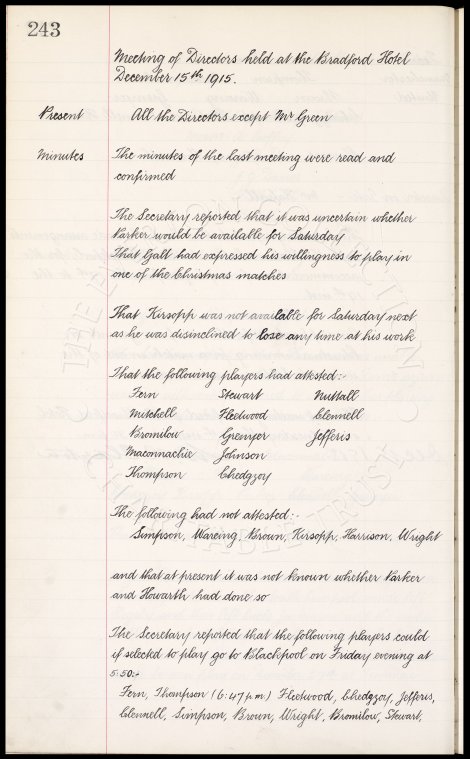 243
Meeting of Directors held at the Bradford Hotel
December 15th 1915.
Present All the Directors except Mr Green
Minutes The minutes of the last meeting were read and
confirmed
The Secretary reported that it was uncertain whether
Parker would be available for Saturday
That Galt had expressed his willingness to play in
one of the Christmas matches
That Kirsopp was not available for Saturday next
as he was disinclined to lose any time at his work
That the following players had attested:-
Fern Stewart Nuttall
Mitchell Fleetwood Clennell
Bromilow Grenyer Jefferis
Maconnachie Johnson
Thompson Chedgzoy
The following had not attested:-
Simpson, Wareing, Brown, Kirsopp, Harrison, Wright
and that at present it was not known whether Parker
and Howarth had done so
The Secretary reported that the following players could
if selected to play go to Blackpool on Friday evening at
5:50:-
Fern, Thompson (6:47 p.m) Fleetwood, Chedgzoy, Jefferis,
Clennell, Simpson, Brown, Wright, Bromilow, Stewart,